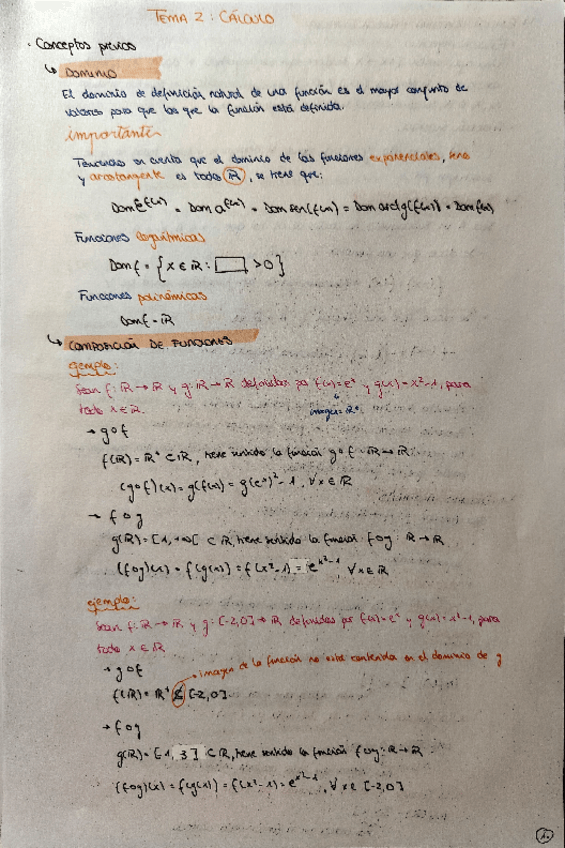 TEMA 2: CÁLCULO
· Conceptos previos
↳ DOMINIO
El dominio de definición natural de una función es el mayor conjunto de
valores para que los que la función está definida.
importante
Teniendo en cuenta que el dominio de las funciones exponenciales, seno
y arcotangente es todo ℝ, se tiene que:
Dom E^f(x) = Dom a^f(x) = Dom sen(f(x)) = Dom arctg(f(x)) = Dom f(x)
Funciones logarítmicas
Dom f = {x ∈ ℝ : □ > 0}
Funciones polinómicas
Dom f = ℝ
↳ COMPOSICIÓN DE FUNCIONES
ejemplo:
Sean f: ℝ → ℝ y g: ℝ → ℝ definidas por f(x) = e^x y g(x) = x² - 1, para
todo x ∈ ℝ.
imagen = ℝ⁺
→ g o f
f(ℝ) = ℝ⁺ ⊂ ℝ, tiene sentido la función g o f : ℝ → ℝ
(g o f)(x) = g(f(x)) = g(e^x)² - 1, ∀x ∈ ℝ
→ f o g
g(ℝ) = [1, +∞[ ⊂ ℝ, tiene sentido la función f o g : ℝ → ℝ
(f o g)(x) = f(g(x)) = f(x² - 1) = e^x²-1 ∀x ∈ ℝ
ejemplo:
Sean f: ℝ → ℝ y g: [-2,0] → ℝ definidas por f(x) = e^x y g(x) = x² - 1, para
todo x ∈ ℝ
→ g o f
→ imagen de la función no está contenida en el dominio de g
f(ℝ) = ℝ⁺ ⊈ [-2,0]
→ f o g
g(ℝ) = [-1, 3] ⊂ ℝ, tiene sentido la función f o g : ℝ → ℝ
(f o g)(x) = f(g(x)) = f(x² - 1) = e^x²-1, ∀x ∈ [-2,0]
1.